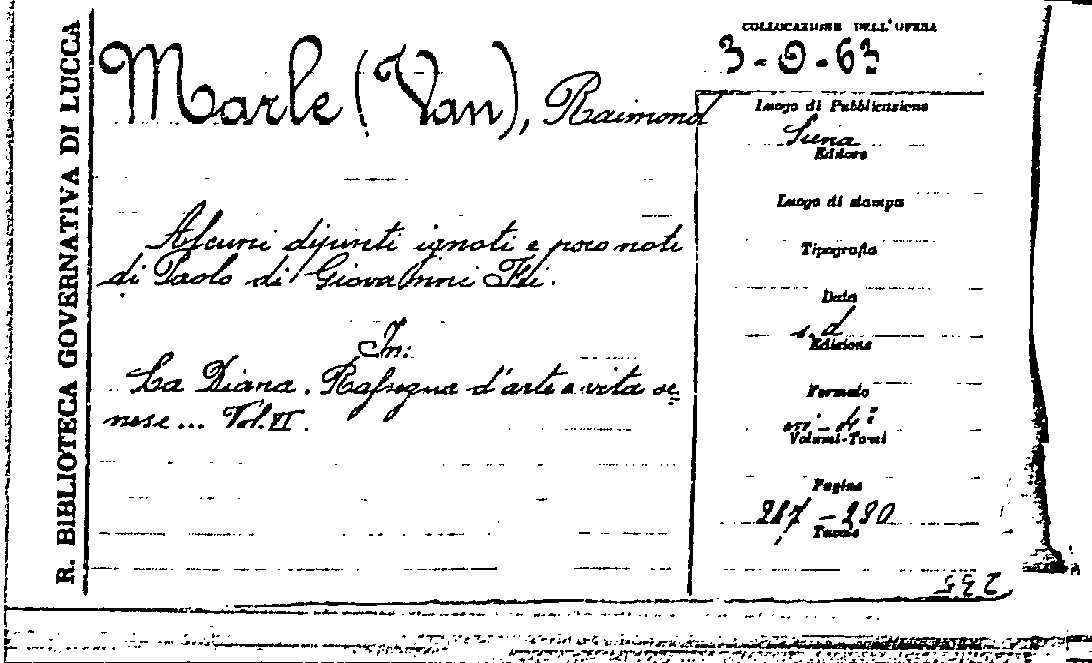 R. BIBLIOTECA GOVERNATIVA DI LUCCA
COLLOCAZIONE DELL'OPERA
3-O-63
Marle (Van), Raimond
Alcuni dipinti ignoti e poco noti
di Paolo di Giovanni Fei.
In:
La Diana. Rassegna d'arte e vita se=
nese... Vol. VI.
Luogo di Pubblicazione
Siena
Editore
Luogo di stampa
Tipografia
Data
s. d.
Edizione
Formato
in-4º
Volumi-Tomi
Pagine
287-290
Tavole
235